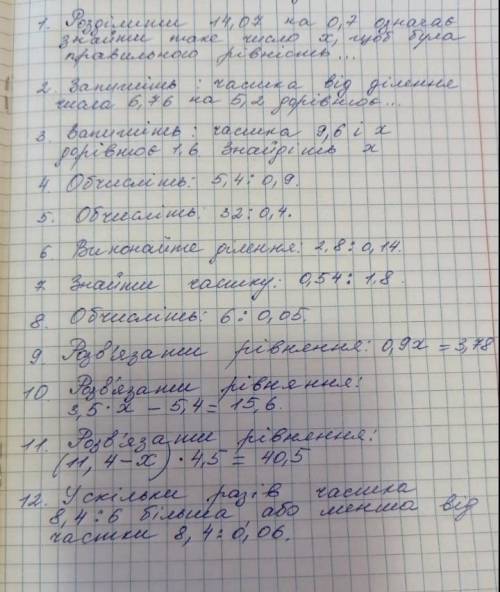 1. Розділити 14,07 на 0,7 означає
знайти таке число x, щоб була
правильною рівність...
2. Запишіть: частка від ділення
числа 6,76 на 5,2 дорівнює...
3. Запишіть: частка 9,6 і x
дорівнює 1,6. Знайдіть x
4. Обчисліть: 5,4 : 0,9.
5. Обчисліть: 32 : 0,4.
6. Виконайте ділення: 2,8 : 0,14.
7. Знайти частку: 0,54 : 1,8.
8. Обчисліть: 6 : 0,05.
9. Розв'язати рівняння: 0,9x = 3,78
10. Розв'язати рівняння:
3,5 · x - 5,4 = 15,6.
11. Розв'язати рівняння:
(11,4 - x) · 4,5 = 40,5
12. У скільки разів частка
8,4 : 6 більша або менша від
частки 8,4 : 0,06.